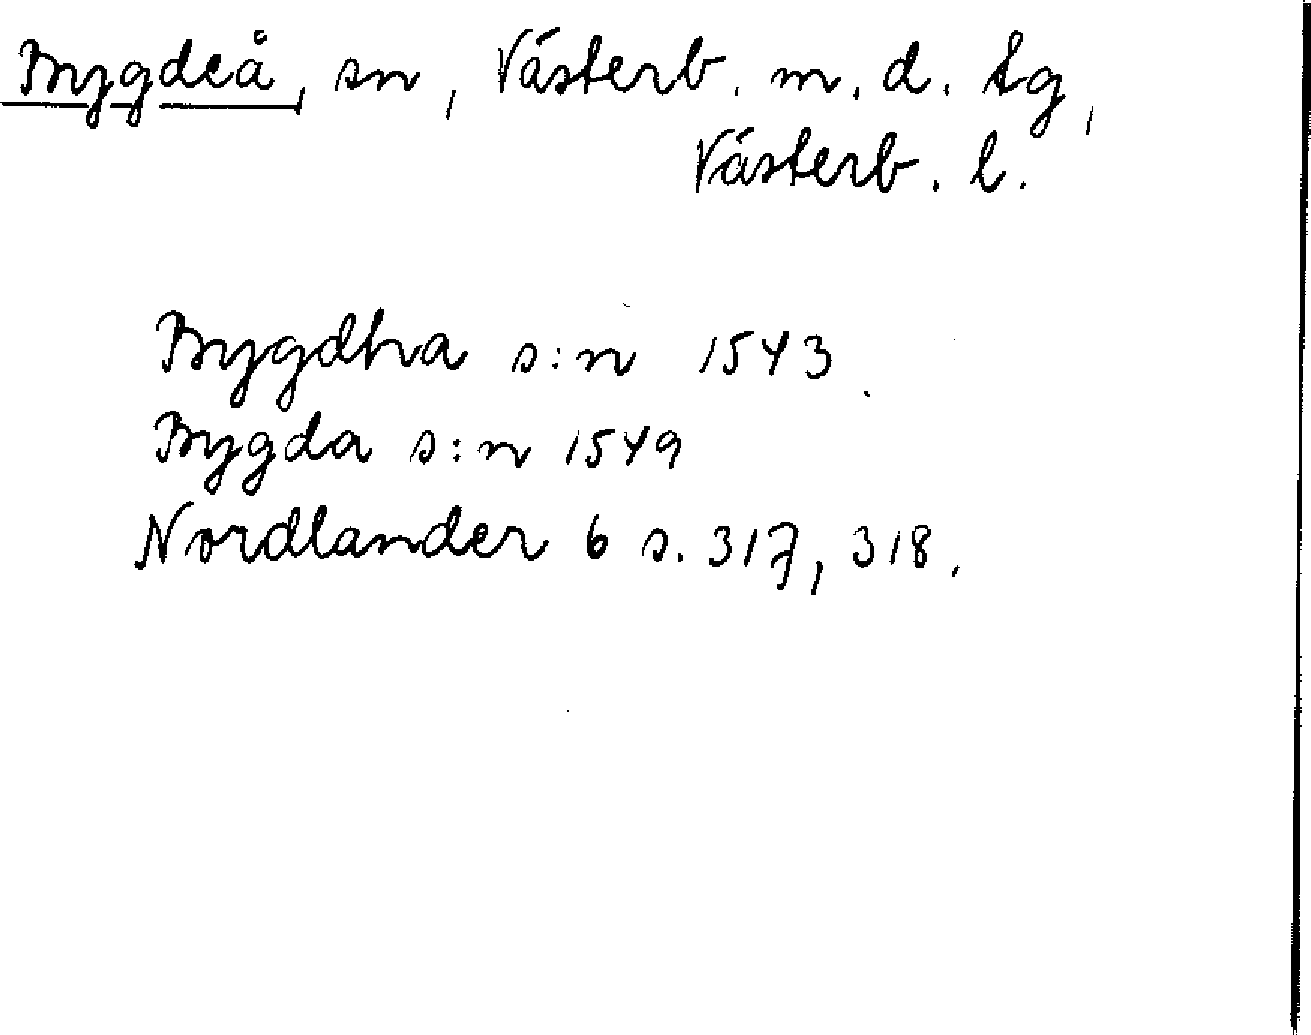 Bygdeå, sn, Västerb. m. d. tg,
Västerb. l.
Bygdha s:n 1543.
Bygda s:n 1549
Nordlander 6 s. 317, 318.